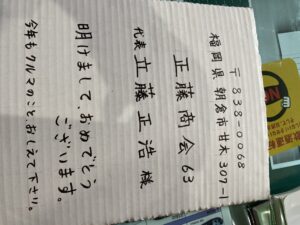 〒838-0068
福岡県朝倉市甘木307-1
正藤商会63
代表 立藤正浩様
明けまして、おめでとう
ございます。
今年もクルマのこと、おしえて下さい。